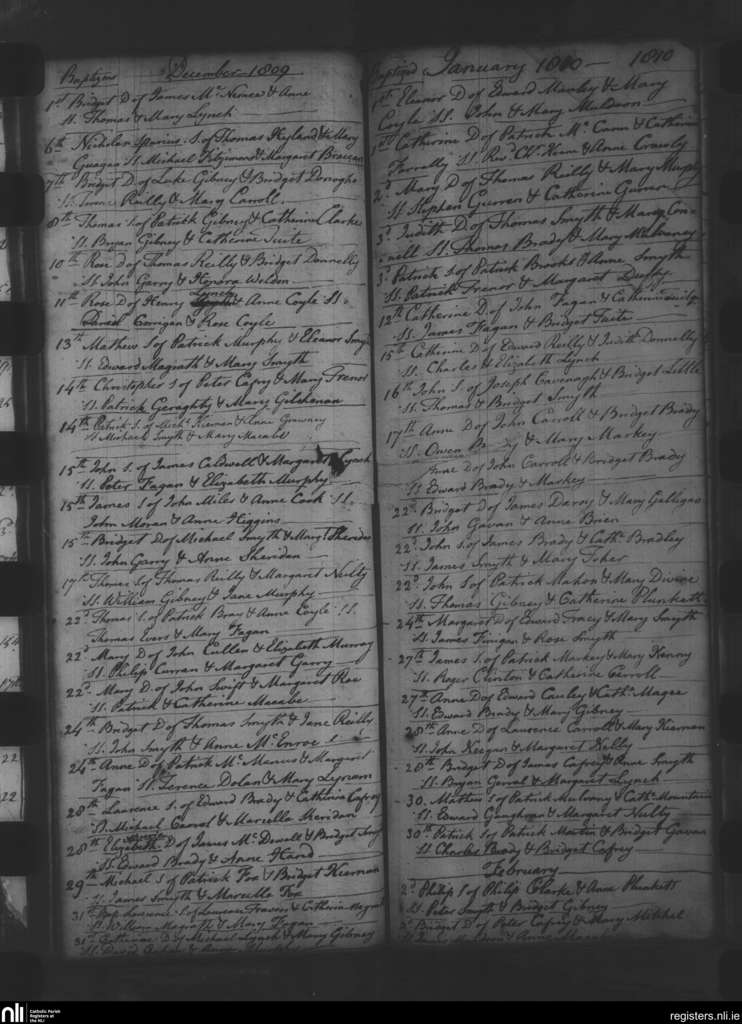 Baptizms December 1809
1st Bridget D of James Mc & Anne
SS. Thomas & Mary Lynch
6th Nicholas Spurius S. of Thomas Hyland & Mary
SS Michael & Margaret
7th Bridget D. of Luke Gibney & Bridget Donogho
SS. Reilly & Mary Carroll
8th Thomas S. of Patrick Gibney & Catherine Clarke
SS. Bryan Gibney & Catherine Tuite
10th Rose D of Thomas Reilly & Bridget Donnelly
SS John Garry & Honora Weldon
11th Rose D of Henry Lynch & Anne Coyle SS.
David Corrigan & Rose Coyle
13th Mathew S of Patrick Murphy & Eleanor Smyth
SS. Edward Magrath & Mary Smyth
14th Christopher S of Peter Cafry & Mary Trenor
SS. Patrick Geraghty & Mary Gilshenan
14th Patrick S. of Michl Kiernan & Anne
SS Michael Smyth & Mary Macabe
15th John S. of James Caldwell & Margaret Lynch
SS. Peter Fagan & Elizabeth Murphy
15th James S of John Miles & Anne Cook SS.
John Moran & Anne Higgins
15th Bridget D of Michael Smyth & Margt Sheridan
SS. John Garry & Anne Sheridan
17th Thomas S of Thomas Reilly & Margaret Nulty
SS. William Gibney & Jane Murphy
22d Thomas S. of Patrick Bray & Anne Coyle SS.
Thomas Evers & Mary Fagan
22d Mary D of John Cullen & Elizabeth Murray
SS. Philip Curran & Margaret Garry
22d Mary D. of John Swift & Margaret Rae
SS. Patrick & Catherine Macabe
24th Bridget D of Thomas Smyth & Jane Reilly
SS. John Smyth & Anne McEnroe
24th Anne D of Patrick McManus & Margaret
Fagan SS. Terence Dolan & Mary Lynam
28th Laurence S. of Edward Brady & Catherine Cafrey
SS. Michael Carrol & Marcella Meridan
28th Elizabeth D of James McDowell & Bridget
SS Edward Brady & Anne Hand
29th Michael S of Patrick Fox & Bridget Kiernan
SS James Smyth & Marcella Fox
31st Laurence S of Laurence & Catherine Magrath
SS. William Magrath & Mary Fagan
31st Catherine D of Michael Lynch & Mary Gibney
SS David
Baptized January 1810 1810
1st Eleanor D of Edward Manley & Mary
Coyle SS. John & Mary Muldoon
1st Catherine D of Patrick McCann & Catherine
Farrelly SS. Revd & Anne Crawly
2d Mary D of Thomas Reilly & Mary Murphy
SS Stephen & Catherine
3d Judith D of Thomas Smyth & Mary Con-
nell SS. Thomas Brady & Mary Mulvaney
3d Patrick S of Patrick Brooks & Anne Smyth
SS. Patrick Trenor & Margaret Duffy
12th Catherine D. of John Fagan & Catherine
SS. James Fagan & Bridget Tuite
15th Catherine D. of Edward Reilly & Judith Donnelly
SS. Charles & Elizabeth Lynch
16th John S. of Joseph Cavenagh & Bridget Little
SS. Thomas & Bridget Smyth
17th Anne D of John Carroll & Bridget Brady
SS. Owen Brady & Mary Markey
Anne D of John Carroll & Bridget Brady
SS Edward Brady & Markey
22d Bridget D of James Darcy & Mary Galligan
SS. John Gavan & Anne Brien
22d John S. of James Brady & Cath. Bradley
SS. James Smyth & Mary
22d John S of Patrick Mahon & Mary Divine
SS. Thomas Gibney & Catherine Plunkett
24th Margaret D of Edward Tracy & Mary Smyth
SS James Finigan & Rose Smyth
27th James S. of Patrick Markey & Mary Kenny
SS. Roger Clinton & Catherine Carroll
27th Anne D of Edward Cauley & Cath. Magee
SS. Edward Brady & Mary Gibney
28th Anne D of Laurence Carroll & Mary Kiernan
SS John Keegan & Margaret Kelly
28th Bridget D of James Cafrey & Anne Smyth
SS. Bryan & Margaret Lynch
30. Mathew S of Patrick Mulvany & Cath. Mountain
SS. Edward Geoghegan & Margaret Nulty
30th Patrick S of Patrick Martin & Bridget Gavan
SS Charles Brady & Bridget Cafrey
February
2d Philip S of Philip Clarke & Anne Plunkett
SS. Peter Smyth & Bridget Gibney
Bridget D. of Peter Cafrey & Mary Mitchel
144
17th
22
22
nli
Catholic Parish
Registers at
the NLI
registers.nli.ie